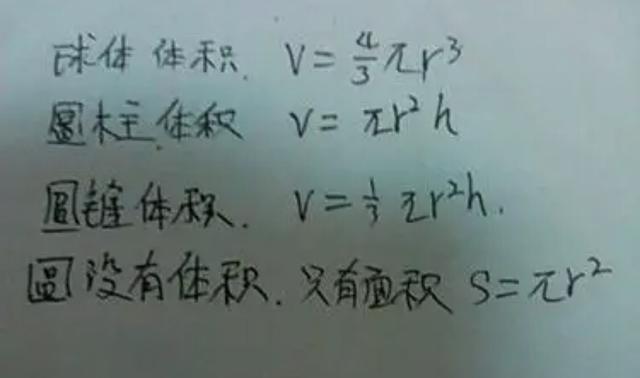 球体体积. V=4/3πr³
圆柱.体积 V=πr²h
圆锥体积. V=1/3πr²h.
圆没有体积.只有面积 S=πr²